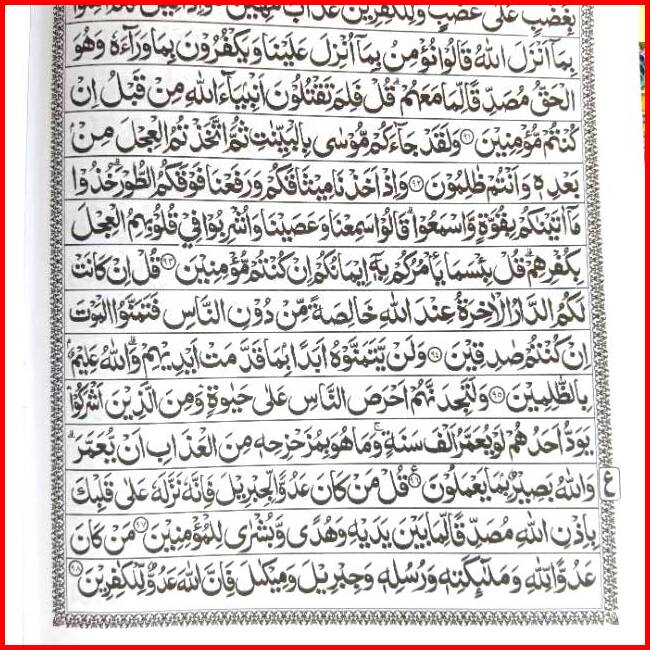 بِغَضَبٍ عَلٰى غَضَبٍ وَلِلْكٰفِرِيْنَ عَذَابٌ مُّهِيْنٌ
بِمَاۤ اَنْزَلَ اللّٰهُ قَالُوْا نُؤْمِنُ بِمَاۤ اُنْزِلَ عَلَيْنَا وَيَكْفُرُوْنَ بِمَا وَرَآءَهٗ وَهُوَ
الْحَقُّ مُصَدِّقًا لِّمَا مَعَهُمْ ؕ قُلْ فَلِمَ تَقْتُلُوْنَ اَنْۢبِيَآءَ اللّٰهِ مِنْ قَبْلُ اِنْ
كُنْتُمْ مُّؤْمِنِيْنَ ﴿٩١﴾ وَلَقَدْ جَآءَكُمْ مُّوْسٰى بِالْبَيِّنٰتِ ثُمَّ اتَّخَذْتُمُ الْعِجْلَ مِنْۢ
بَعْدِهٖ وَاَنْتُمْ ظٰلِمُوْنَ ﴿٩٢﴾ وَاِذْ اَخَذْنَا مِيْثَاقَكُمْ وَرَفَعْنَا فَوْقَكُمُ الطُّوْرَ ؕ خُذُوْا
مَاۤ اٰتَيْنٰكُمْ بِقُوَّةٍ وَّاسْمَعُوْا ؕ قَالُوْا سَمِعْنَا وَعَصَيْنَا وَاُشْرِبُوْا فِيْ قُلُوْبِهِمُ الْعِجْلَ
بِكُفْرِهِمْ ؕ قُلْ بِئْسَمَا يَاْمُرُكُمْ بِهٖۤ اِيْمَانُكُمْ اِنْ كُنْتُمْ مُّؤْمِنِيْنَ ﴿٩٣﴾ قُلْ اِنْ كَانَتْ
لَكُمُ الدَّارُ الْاٰخِرَةُ عِنْدَ اللّٰهِ خَالِصَةً مِّنْ دُوْنِ النَّاسِ فَتَمَنَّوُا الْمَوْتَ
اِنْ كُنْتُمْ صٰدِقِيْنَ ﴿٩٤﴾ وَلَنْ يَّتَمَنَّوْهُ اَبَدًۢا بِمَا قَدَّمَتْ اَيْدِيْهِمْ ؕ وَاللّٰهُ عَلِيْمٌۢ
بِالظّٰلِمِيْنَ ﴿٩٥﴾ وَلَتَجِدَنَّهُمْ اَحْرَصَ النَّاسِ عَلٰى حَيٰوةٍ ۛ وَمِنَ الَّذِيْنَ اَشْرَكُوْا ۛ
يَوَدُّ اَحَدُهُمْ لَوْ يُعَمَّرُ اَلْفَ سَنَةٍ ۚ وَمَا هُوَ بِمُزَحْزِحِهٖ مِنَ الْعَذَابِ اَنْ يُّعَمَّرَ ؕ
وَاللّٰهُ بَصِيْرٌۢ بِمَا يَعْمَلُوْنَ ﴿٩٦﴾ قُلْ مَنْ كَانَ عَدُوًّا لِّجِبْرِيْلَ فَاِنَّهٗ نَزَّلَهٗ عَلٰى قَلْبِكَ
ع
بِاِذْنِ اللّٰهِ مُصَدِّقًا لِّمَا بَيْنَ يَدَيْهِ وَهُدًى وَّبُشْرٰى لِلْمُؤْمِنِيْنَ ﴿٩٧﴾ مَنْ كَانَ
عَدُوًّا لِّلّٰهِ وَمَلٰٓئِكَتِهٖ وَرُسُلِهٖ وَجِبْرِيْلَ وَمِيْكٰىلَ فَاِنَّ اللّٰهَ عَدُوٌّ لِّلْكٰفِرِيْنَ ﴿٩٨﴾